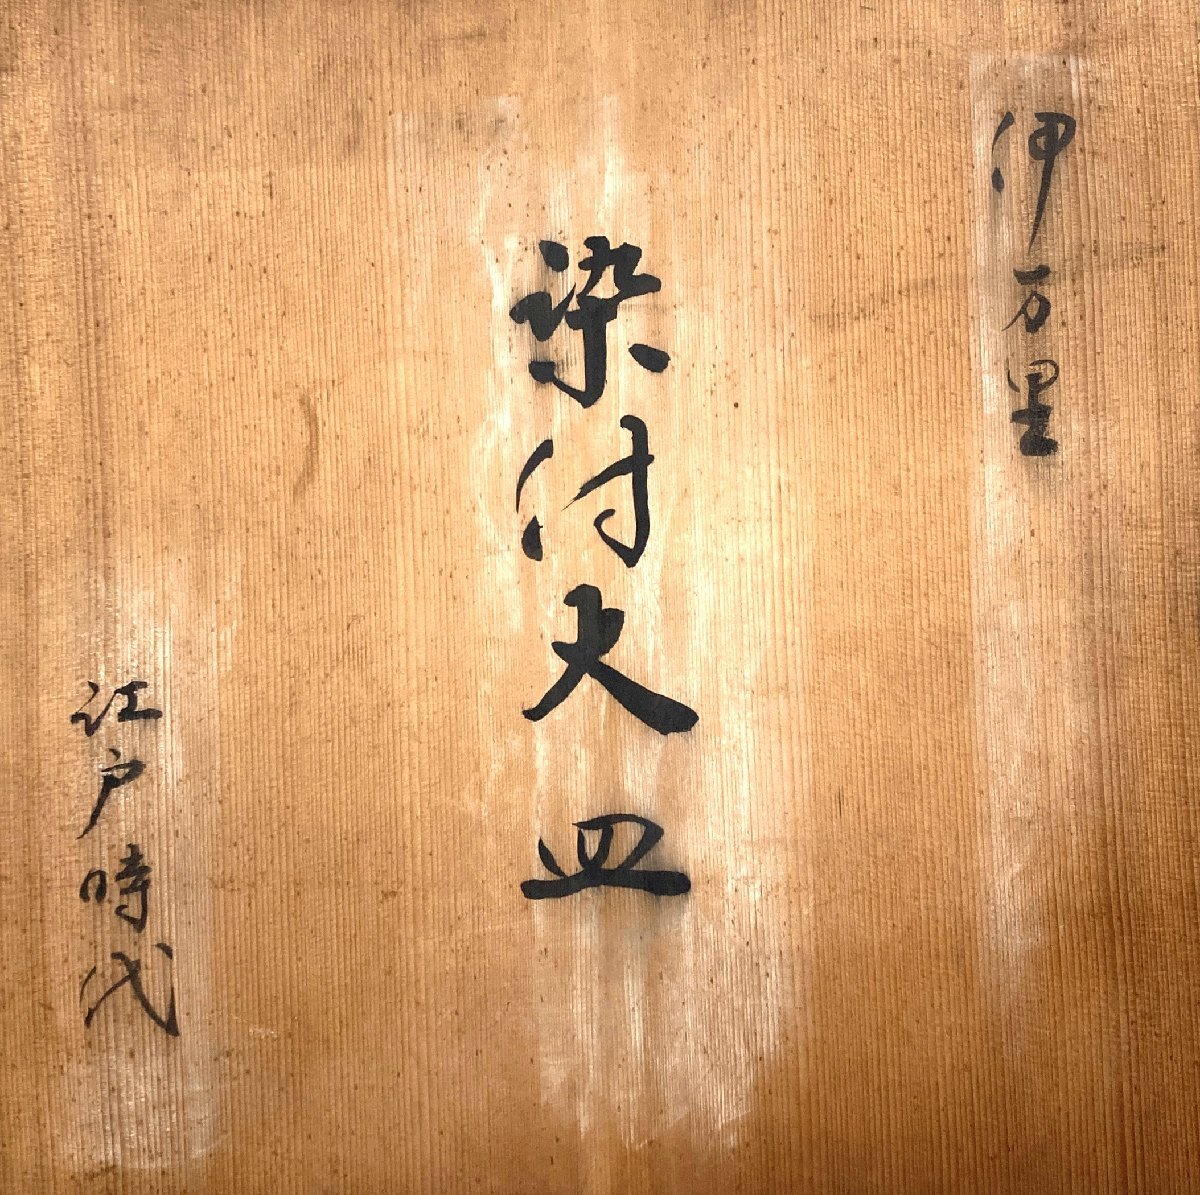 伊万里
染付大皿
江戸時代